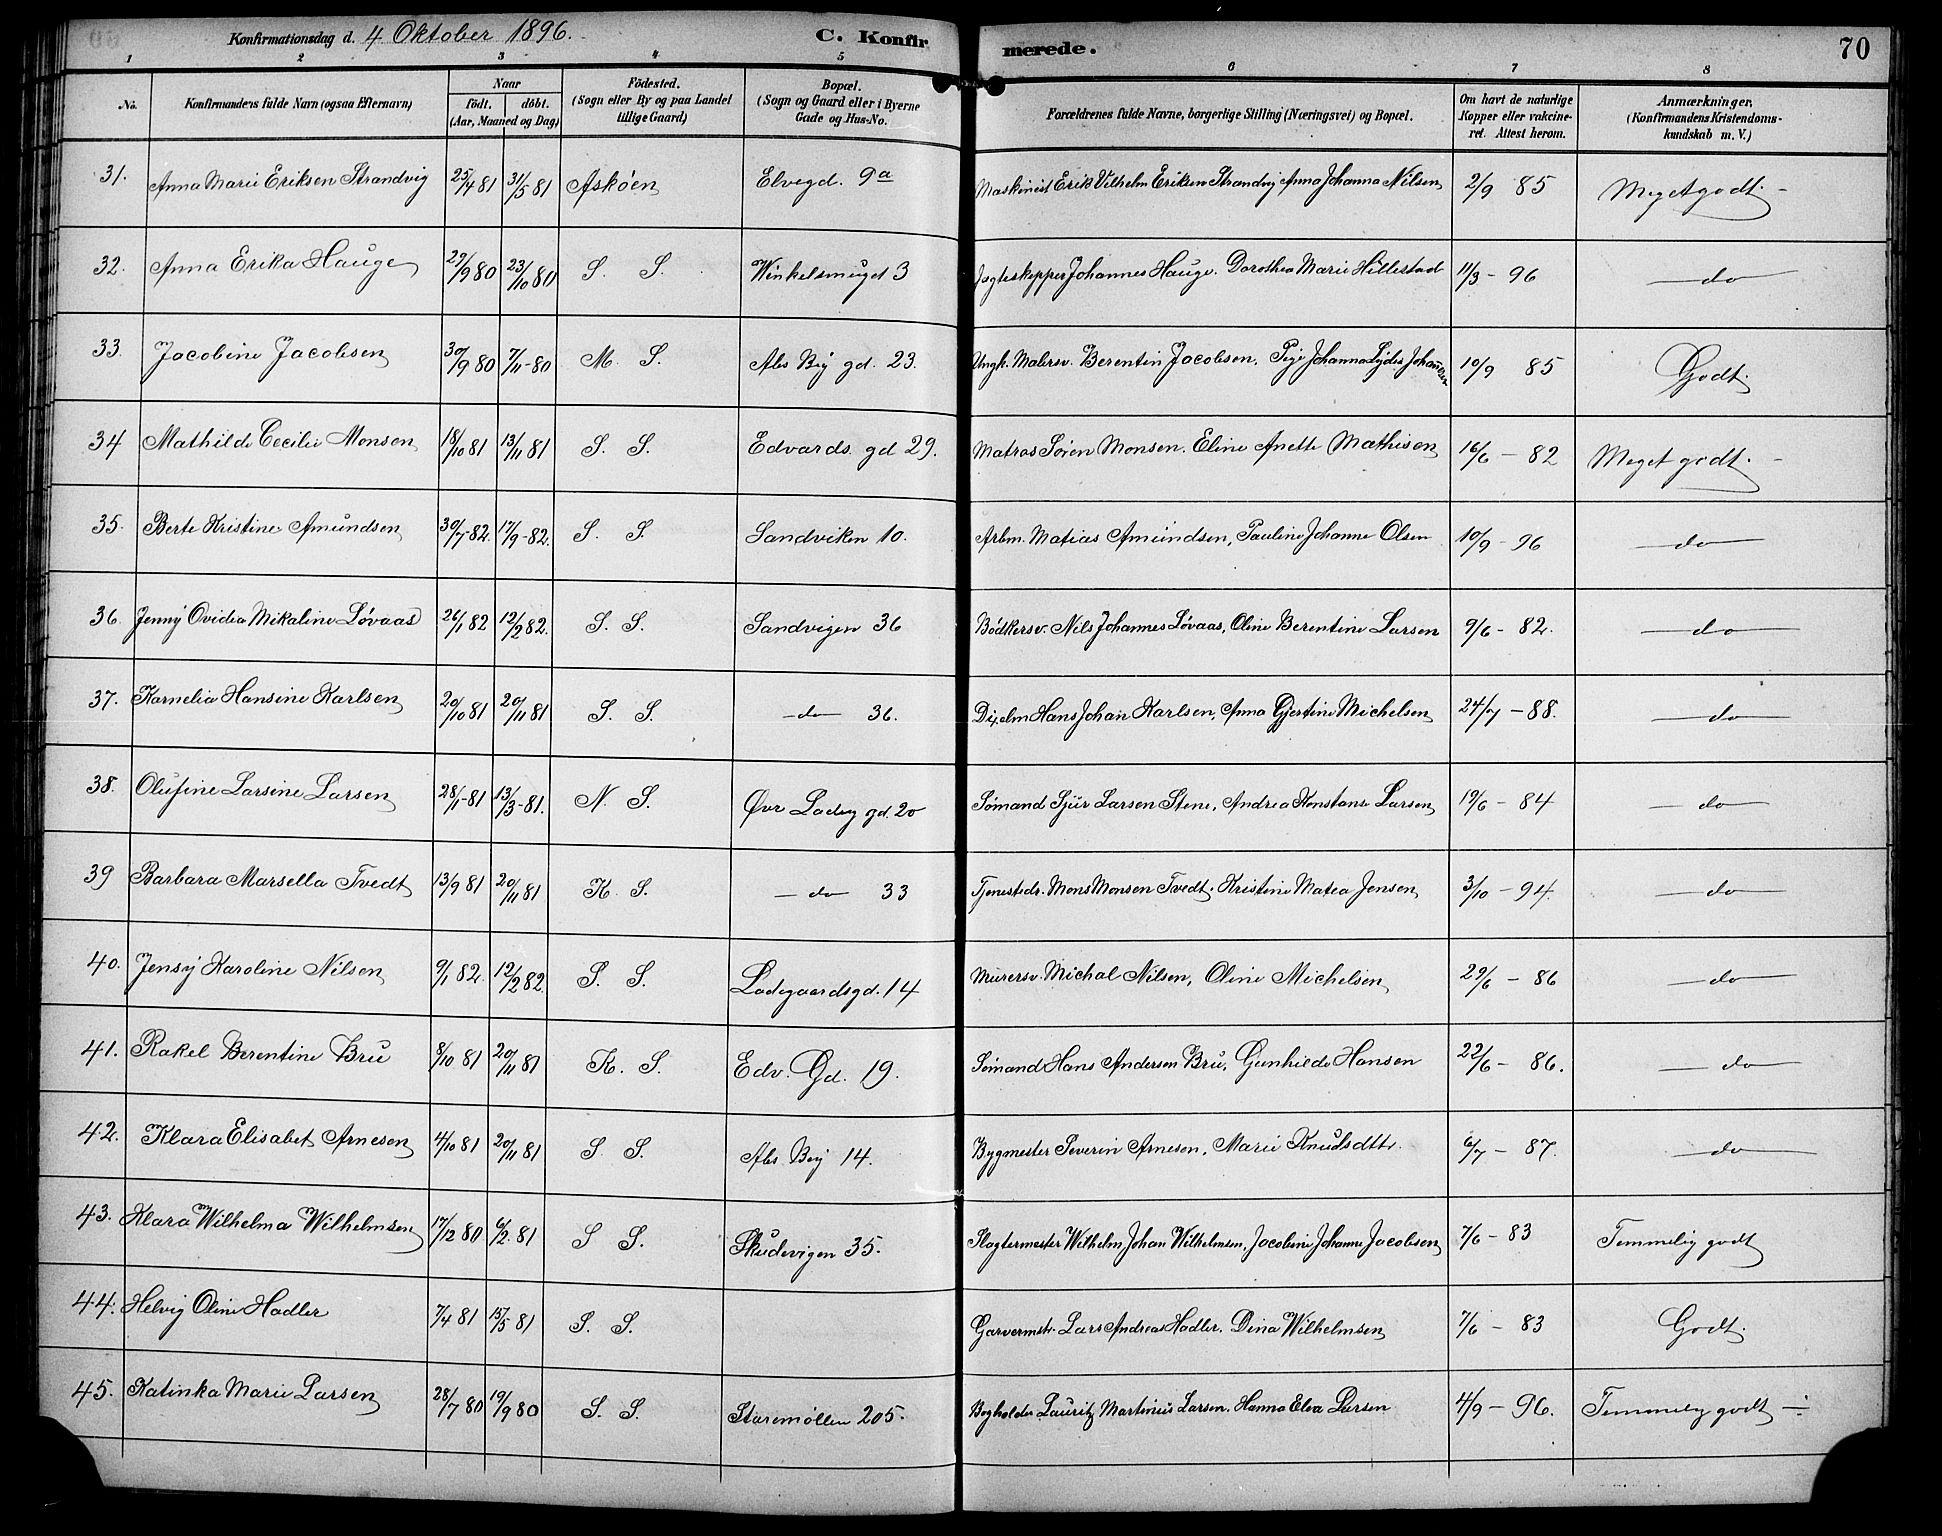 Konfirmationsdag d. 4 Oktober 1896. C. Konfirmerede. 70
1 2 3 4 5 6 7 8
No. Konfirmandens fulde Navn (ogsaa Efternavn) Naar født. døbt. (Aar, Maaned og Dag) Fødested. (Sogn eller By og paa Landet tillige Gaard) Bopæl. (Sogn og Gaard eller i Byerne Gade og Hus-No. Forældrenes fulde Navne, borgerlige Stilling (Næringsvei) og Bopæl. Om havt de naturlige Kopper eller vakcineret. Attest herom. Anmærkninger. (Konfirmandens Kristendomskundskab m. V.)
31. Anna Marie Eriksen Strandvig 25/4 81 31/5 81 Askøen Elvegd. 9a Maskinist Erik Vilhelm Eriksen Strandvig Anna Johanna Nilsen 2/9 85 Meget godt. -
32. Anna Erika Hauge 29/9 80 23/10 80 S. S. Winkelsmugd 3 Jagteskypper Johannes Hauge. Dorothea Marie Hillestad 11/3 - 96 - do -
33. Jacobine Jacobsen 30/9 80 7/11 - 80 M. S. Abs Bÿ gd. 23. Ungk. Malersv. Berentin Jacobsen. Pige Johanna Lydia Johannessen 10/9 85 Godt.
34 Mathilde Cecilie Monsen 18/10 81 13/11 81 S. S. Edvards. gd 29. Matros Søren Monsen. Eline Anette Mathisen 16/6 - 82 Meget godt. -
35. Berte Kristine Amundsen 30/7 - 82. 17/9 - 82. S. S. Sandviken 10. Arbm. Matias Amundsen, Pauline Johanne Olsen 10/9 - 96 - do -
36. Jenny Ovidia Mikaline Løvaas 26/1 82 12/2 82. S. S. Sandvigen 36 Bødkersv. Nils Johannes Løvaas, Oline Berentine Larsen 9/6 - 82. - do -
37. Kornelia Hansine Karlsen 20/10 81 20/11 81 S. S. - do - 36. Hans Johan Karlsen, Anna Gjertine Michelsen 24/7 - 88. - do -
38. Olufine Larsine Larsen 28/1 - 81 13/3 - 81. N. S. Øvr Ladeg gd. 20 Sømand Sjur Larsen Stene, Andrea Konstanse Larsen 19/6 - 84 - do -
39 Barbara Marsella Tvedt 13/9 81 20/11 81 K. S. - do 33 Tjenestdr. Mons Monsen Tvedt. Kristine Matea Jensen 3/10 - 94. - do -
40. Jensy Karoline Nilsen 9/1 82. 12/2 82. S. S. Ladegaardsgd. 14 Murersv. Michal Nilsen, Oline Michelsen 29/6 - 86 - do -
41. Rakel Berentine Bru 8/10 81 20/11 81 K. S. Edv. Gd. 19. Sømand Hans Andersen Bru, Gunhilde Hansen 22/6 - 86. - do -
42. Klara Elisabet Arnesen 4/10 81 20/11 81 S. S. Abs. Bÿ 14. Bygmester Severin Arnesen, Marie Knudsdttr. 6/7 - 87. - do -
43. Klara Wilhelma Wilhelmsen 17/12 80 6/2. 81 S S. Skudevigen 35. Slagtermester Wilhelm Johan Wilhelmsen, Jacobine Johanne Jacobsen 7/6 - 83 Temmelig godt
44. Helvig Oline Hadler 7/4 81 15/5 81 S. S. Garvermstr. Lars Andreas Hadler. Dina Wilhelmsen 7/6 - 83 Godt.
45. Katinka Marie Larsen 28/7 80 19/9 80 S. S. Storemøllen 205. Bogholder Lauritz Martinius Larsen. Hanna Elva Larsen 4/9 - 96. Temmelig godt -